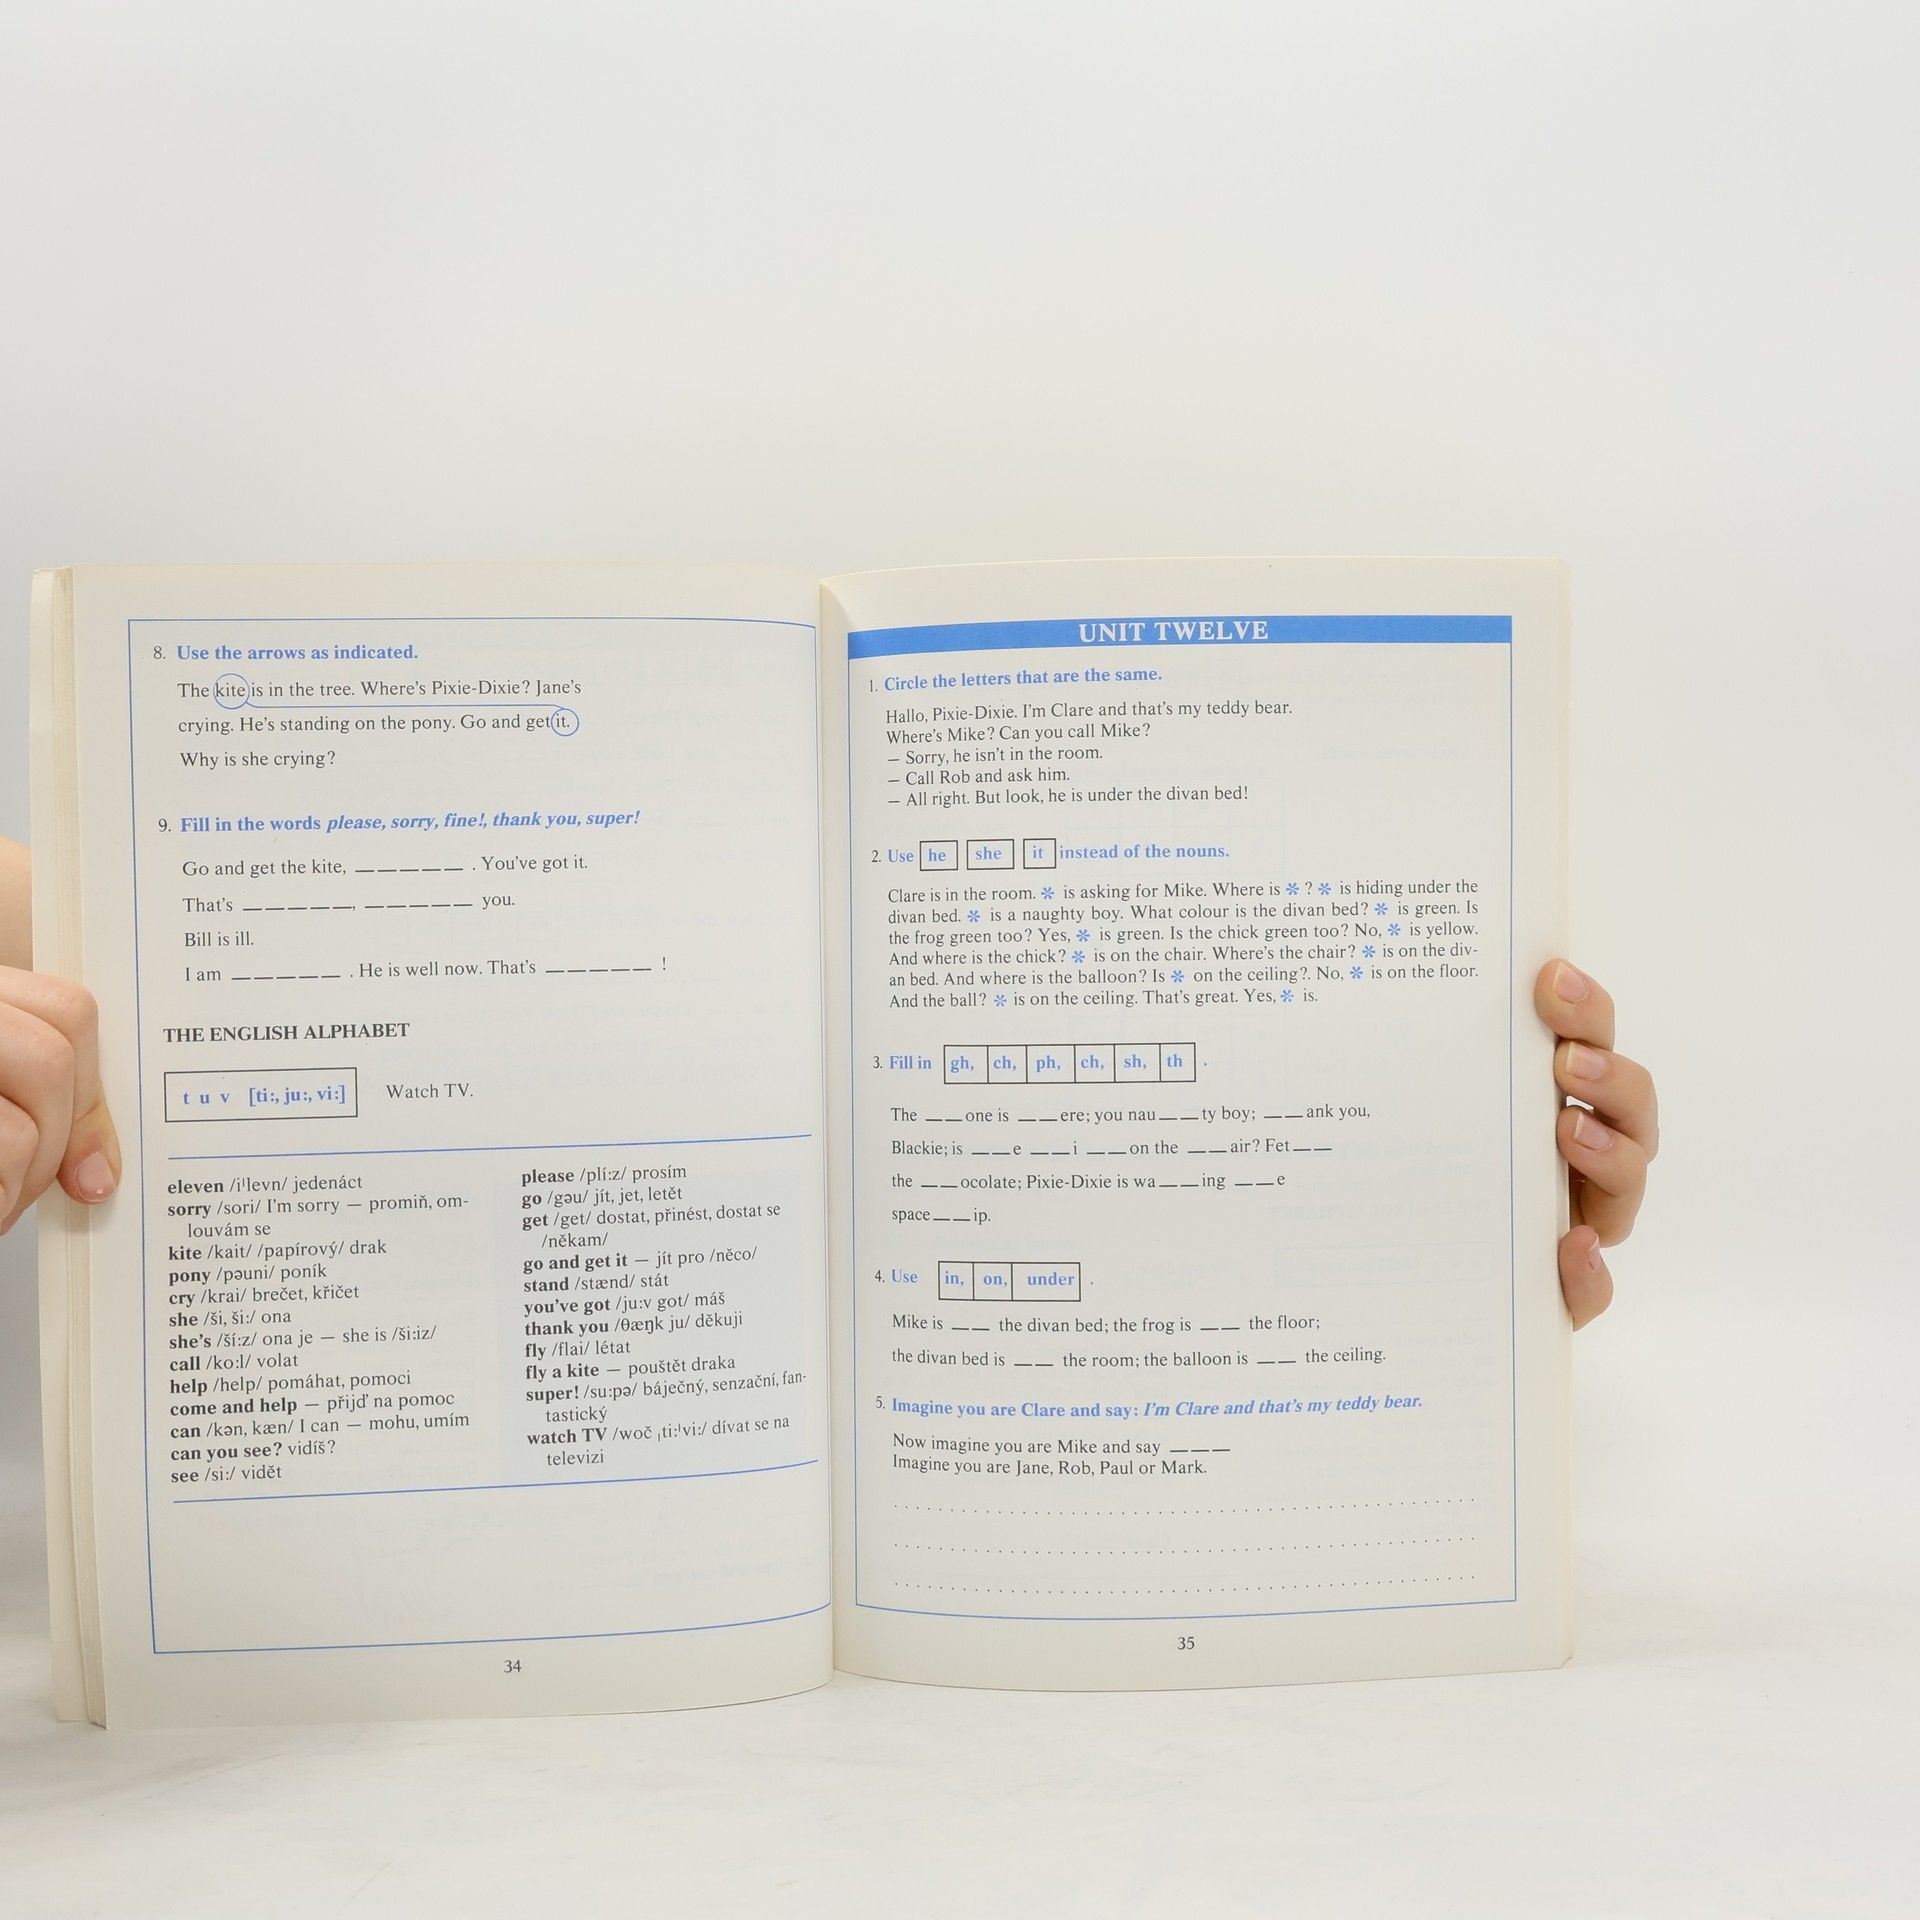 8. Use the arrows as indicated.
The kite is in the tree. Where's Pixie-Dixie? Jane's
crying. He's standing on the pony. Go and get it.
Why is she crying?
9. Fill in the words please, sorry, fine!, thank you, super!
Go and get the kite, _ _ _ _ _ . You've got it.
That's _ _ _ _ _, _ _ _ _ _ you.
Bill is ill.
I am _ _ _ _ _ . He is well now. That's _ _ _ _ _ !
THE ENGLISH ALPHABET
t u v [ti:, ju:, vi:] Watch TV.
eleven /iˈlevn/ jedenáct
sorry /sori/ I'm sorry — promiň, om-
louvám se
kite /kait/ /papírový/ drak
pony /pəuni/ poník
cry /krai/ brečet, křičet
she /ši, ši:/ ona
she's /ší:z/ ona je — she is /ši:iz/
call /ko:l/ volat
help /help/ pomáhat, pomoci
come and help — přijď na pomoc
can /kən, kæn/ I can — mohu, umím
can you see? vidíš?
see /si:/ vidět
please /plí:z/ prosím
go /gəu/ jít, jet, letět
get /get/ dostat, přinést, dostat se
/někam/
go and get it — jít pro /něco/
stand /stænd/ stát
you've got /ju:v got/ máš
thank you /θæŋk ju/ děkuji
fly /flai/ létat
fly a kite — pouštět draka
super! /su:pə/ báječný, senzační, fan-
tastický
watch TV /woč ˌti:ˈvi:/ dívat se na
televizi
34
UNIT TWELVE
1. Circle the letters that are the same.
Hallo, Pixie-Dixie. I'm Clare and that's my teddy bear.
Where's Mike? Can you call Mike?
— Sorry, he isn't in the room.
— Call Rob and ask him.
— All right. But look, he is under the divan bed!
2. Use he she it instead of the nouns.
Clare is in the room. * is asking for Mike. Where is * ? * is hiding under the
divan bed. * is a naughty boy. What colour is the divan bed? * is green. Is
the frog green too? Yes, * is green. Is the chick green too? No, * is yellow.
And where is the chick? * is on the chair. Where's the chair? * is on the div-
an bed. And where is the balloon? Is * on the ceiling?. No, * is on the floor.
And the ball? * is on the ceiling. That's great. Yes, * is.
3. Fill in gh, ch, ph, ch, sh, th .
The _ _ one is _ _ ere; you nau _ _ ty boy; _ _ ank you,
Blackie; is _ _ e _ _ i _ _ on the _ _ air? Fet _ _
the _ _ ocolate; Pixie-Dixie is wa _ _ ing _ _ e
space _ _ ip.
4. Use in, on, under .
Mike is _ _ the divan bed; the frog is _ _ the floor;
the divan bed is _ _ the room; the balloon is _ _ the ceiling.
5. Imagine you are Clare and say: I'm Clare and that's my teddy bear.
Now imagine you are Mike and say _ _ _
Imagine you are Jane, Rob, Paul or Mark.
35